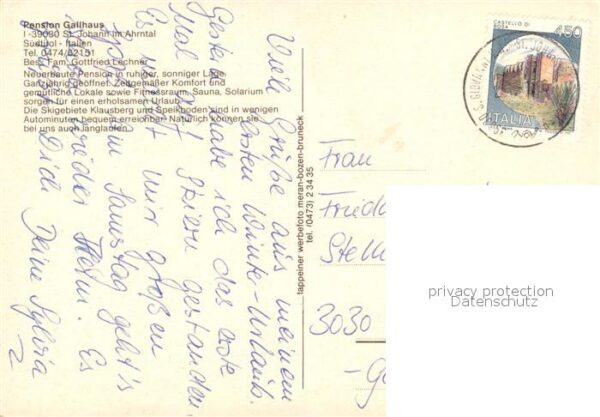 Pension Gallhaus
I-39030 St. Johann im Ahrntal
Südtirol - Italien
Tel. 0474/62151
Bes. Fam. Gottfried Lechner
Neuerbaute Pension in ruhiger, sonniger Lage.
Ganzjährig geöffnet. Zeitgemäßer Komfort und
gemütliche Lokale sowie Fitnessraum, Sauna, Solarium
sorgen für einen erholsamen Urlaub.
Die Skigebiete Klausberg und Speikboden sind in wenigen
Autominuten bequem erreichbar. Natürlich können sie
bei uns auch langlaufen.
Viele Grüße aus meinem
ersten Winter-Urlaub.
Gestern habe ich das erste
Mal auf Skiern gestanden.
Es macht mir großen
Spaß. Am Samstag geht's
wieder Heim. Es
Dich Deine Sylvia
tappeiner werbefoto meran-bozen-bruneck
tel. (0473) 2 34 35
CASTELLO DI
450
ITALIA
Frau
Stelle
3030
privacy protection
Datenschutz